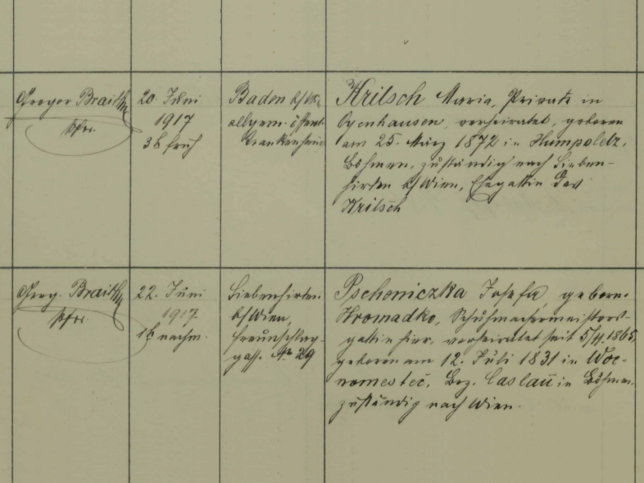 Gregor Braith
Pfr.
20. Juni
1917
3h früh
Baden b/Wien
allgem. öffentl.
Krankenhaus
Kritsch Maria, Private in
verheiratet, geboren
am 25. März 1872 in Humpoletz,
Böhmen, zuständig nach Sieben-
hirten b/Wien, Ehegattin des
Kritsch
Greg. Braith
Pfr.
22. Juni
1917
1h nachm.
Siebenhirten
b/Wien,
gasse No 29
Pscheniczka Josefa, geborne
Hromadko, Schuhmachermeisters-
gattin hier, verheiratet seit 5/4 1865,
geboren am 12. Juli 1831 in
Bez. Caslau in Böhmen,
zuständig nach Wien.